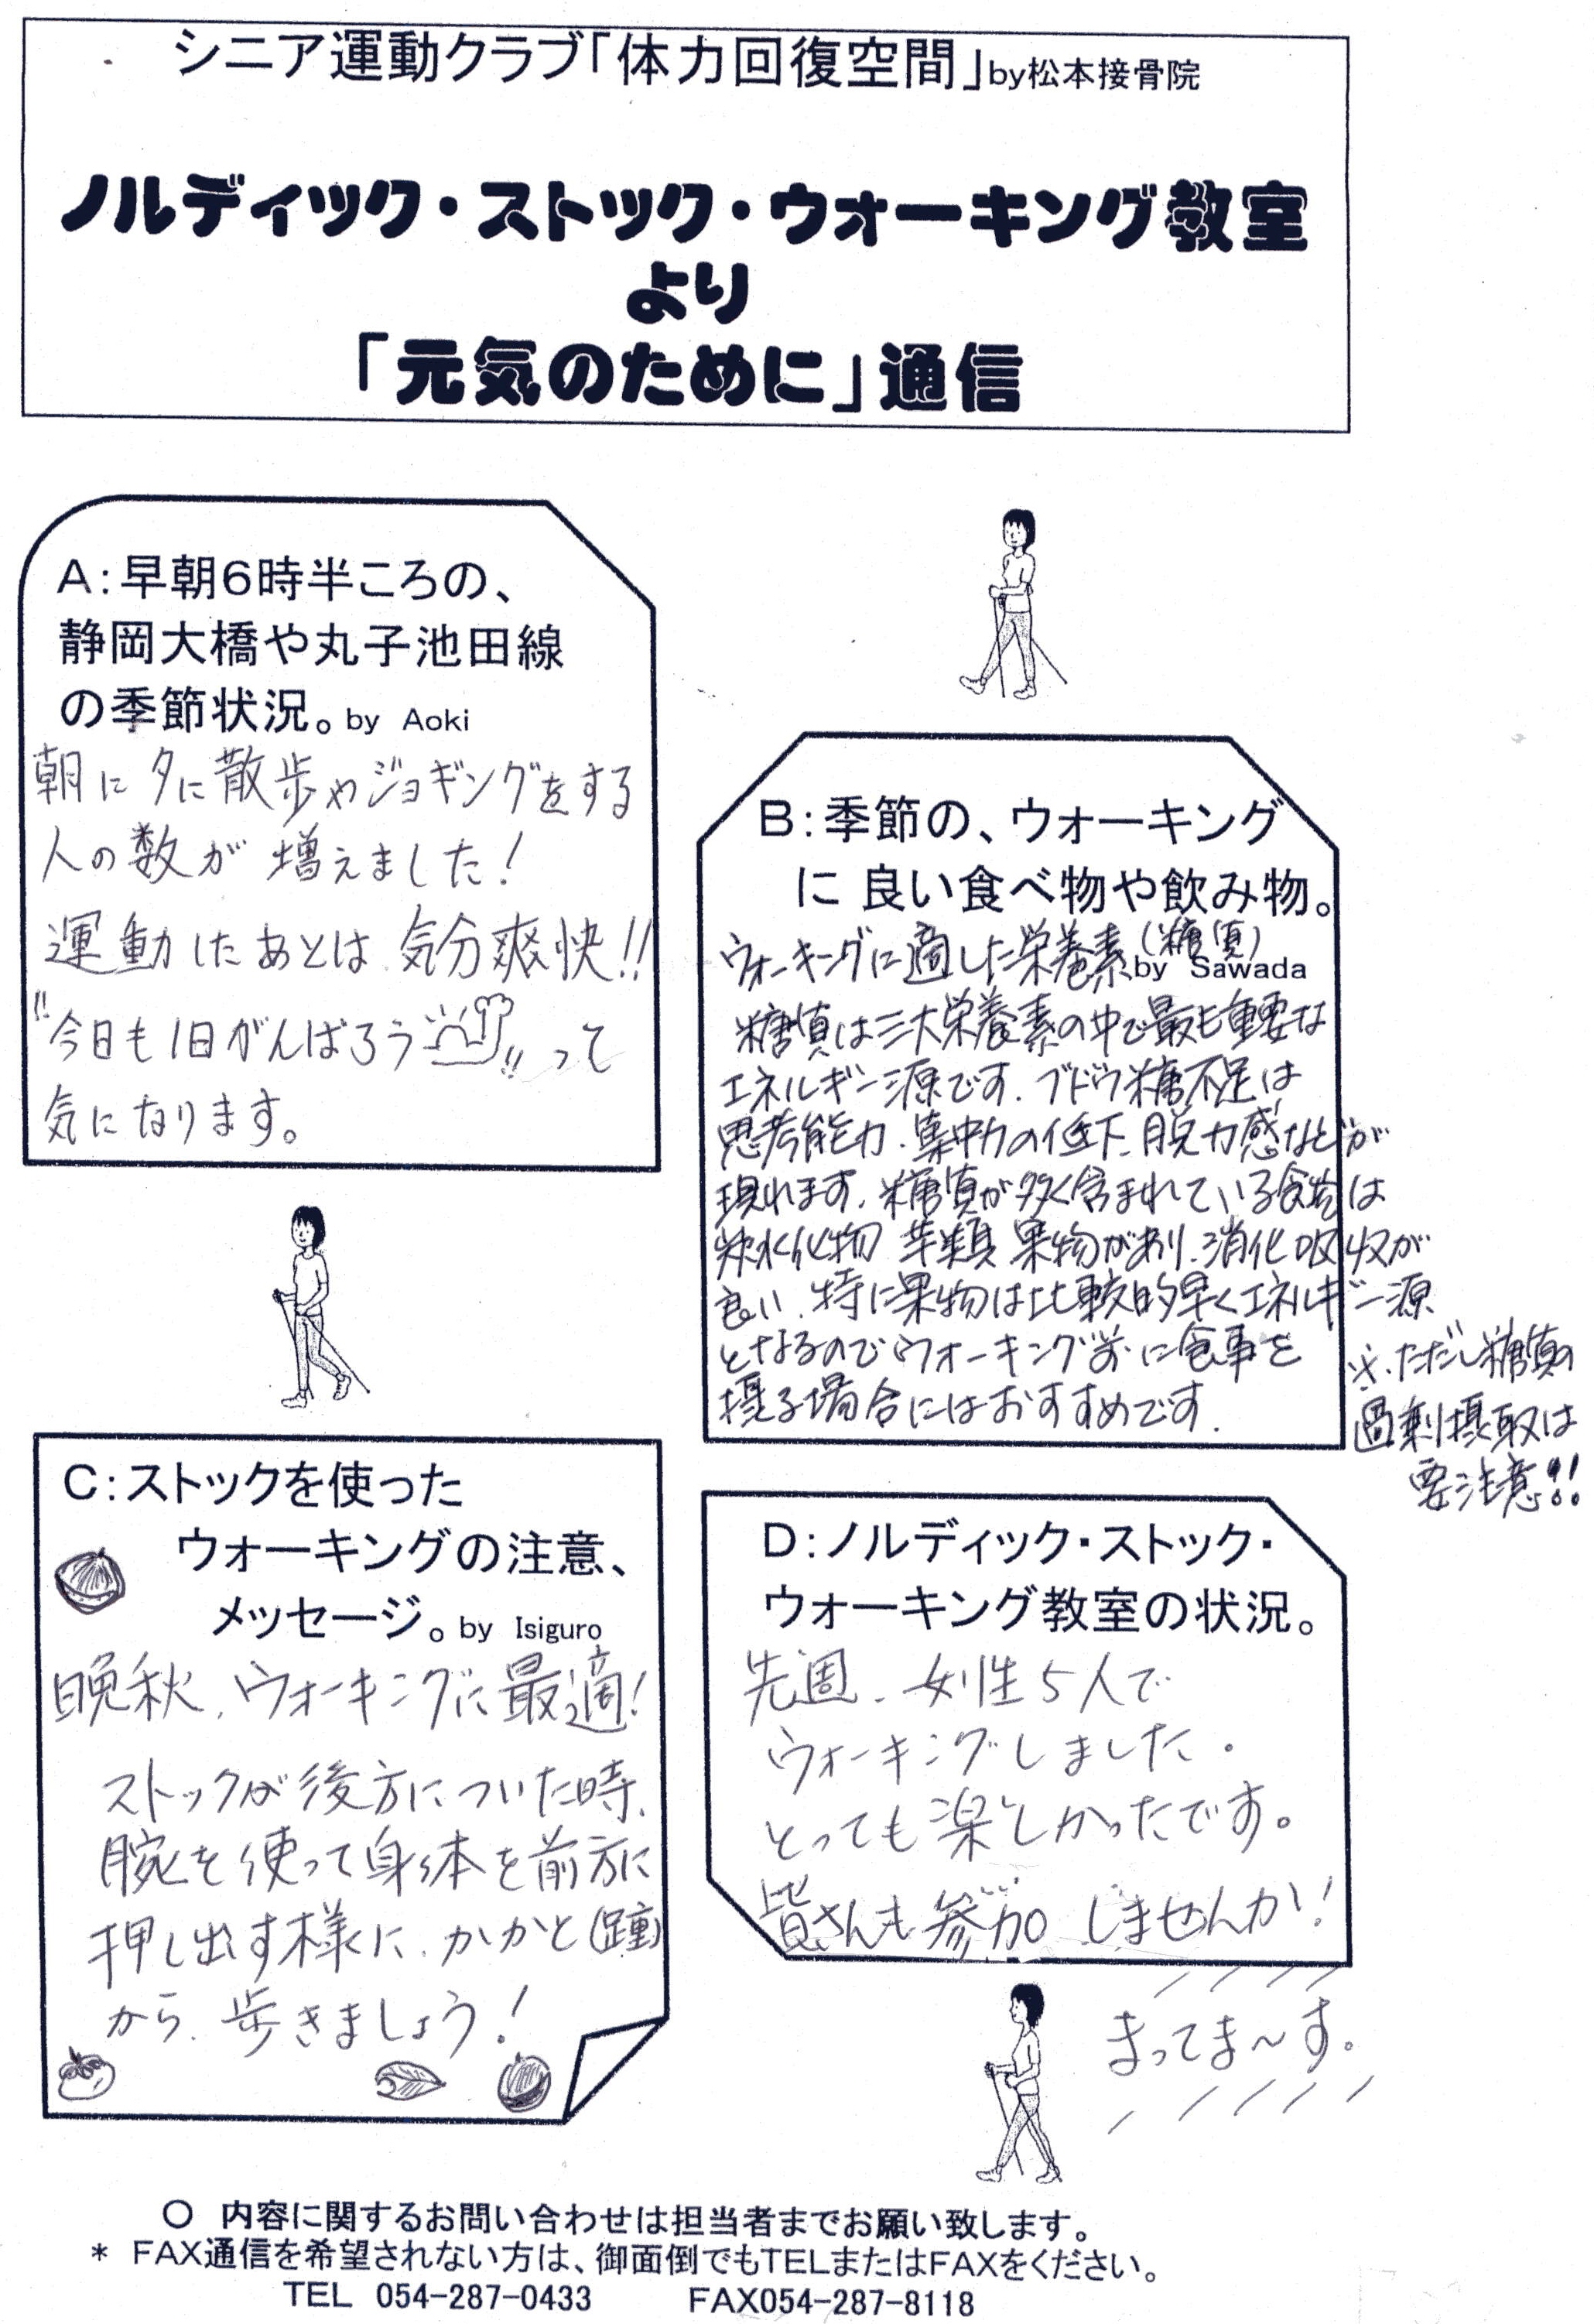 シニア運動クラブ「体力回復空間」by松本接骨院
ノルディック・ストック・ウォーキング教室
より
「元気のために」通信
A:早朝6時半ころの、
静岡大橋や丸子池田線
の季節状況。by Aoki
朝に夕に散歩やジョギングをする
人の数が増えました!
運動したあとは気分爽快!!
"今日も1日がんばろう!!って
気になります。
B:季節の、ウォーキング
に 良い食べ物や飲み物。
by Sawada
ウォーキングに適した栄養素(糖質)
糖質は三大栄養素の中で最も重要な
エネルギー源です.ブドウ糖不足は
思考能力.集中力の低下.脱力感などが
現れます.糖質が多く含まれている食物は
炭水化物 芋類 果物があり.消化吸収が
良い.特に果物は比較的早くエネルギー源
となるのでウォーキング前に食事を
摂る場合にはおすすめです.
※ただし糖質の
過剰摂取は
要注意!!
C:ストックを使った
ウォーキングの注意、
メッセージ。by Isiguro
晩秋、ウォーキングに最適!
ストックが後方についた時、
腕を使って身体を前方に
押し出す様に、かかと(踵)
から、歩きましょう!
D:ノルディック・ストック・
ウォーキング教室の状況。
先週、女性5人で
ウォーキングしました.
とっても楽しかったです。
皆さんも参加しませんか!
まってま〜す。
○ 内容に関するお問い合わせは担当者までお願い致します。
* FAX通信を希望されない方は、御面倒でもTELまたはFAXをください。
TEL 054-287-0433 FAX054-287-8118